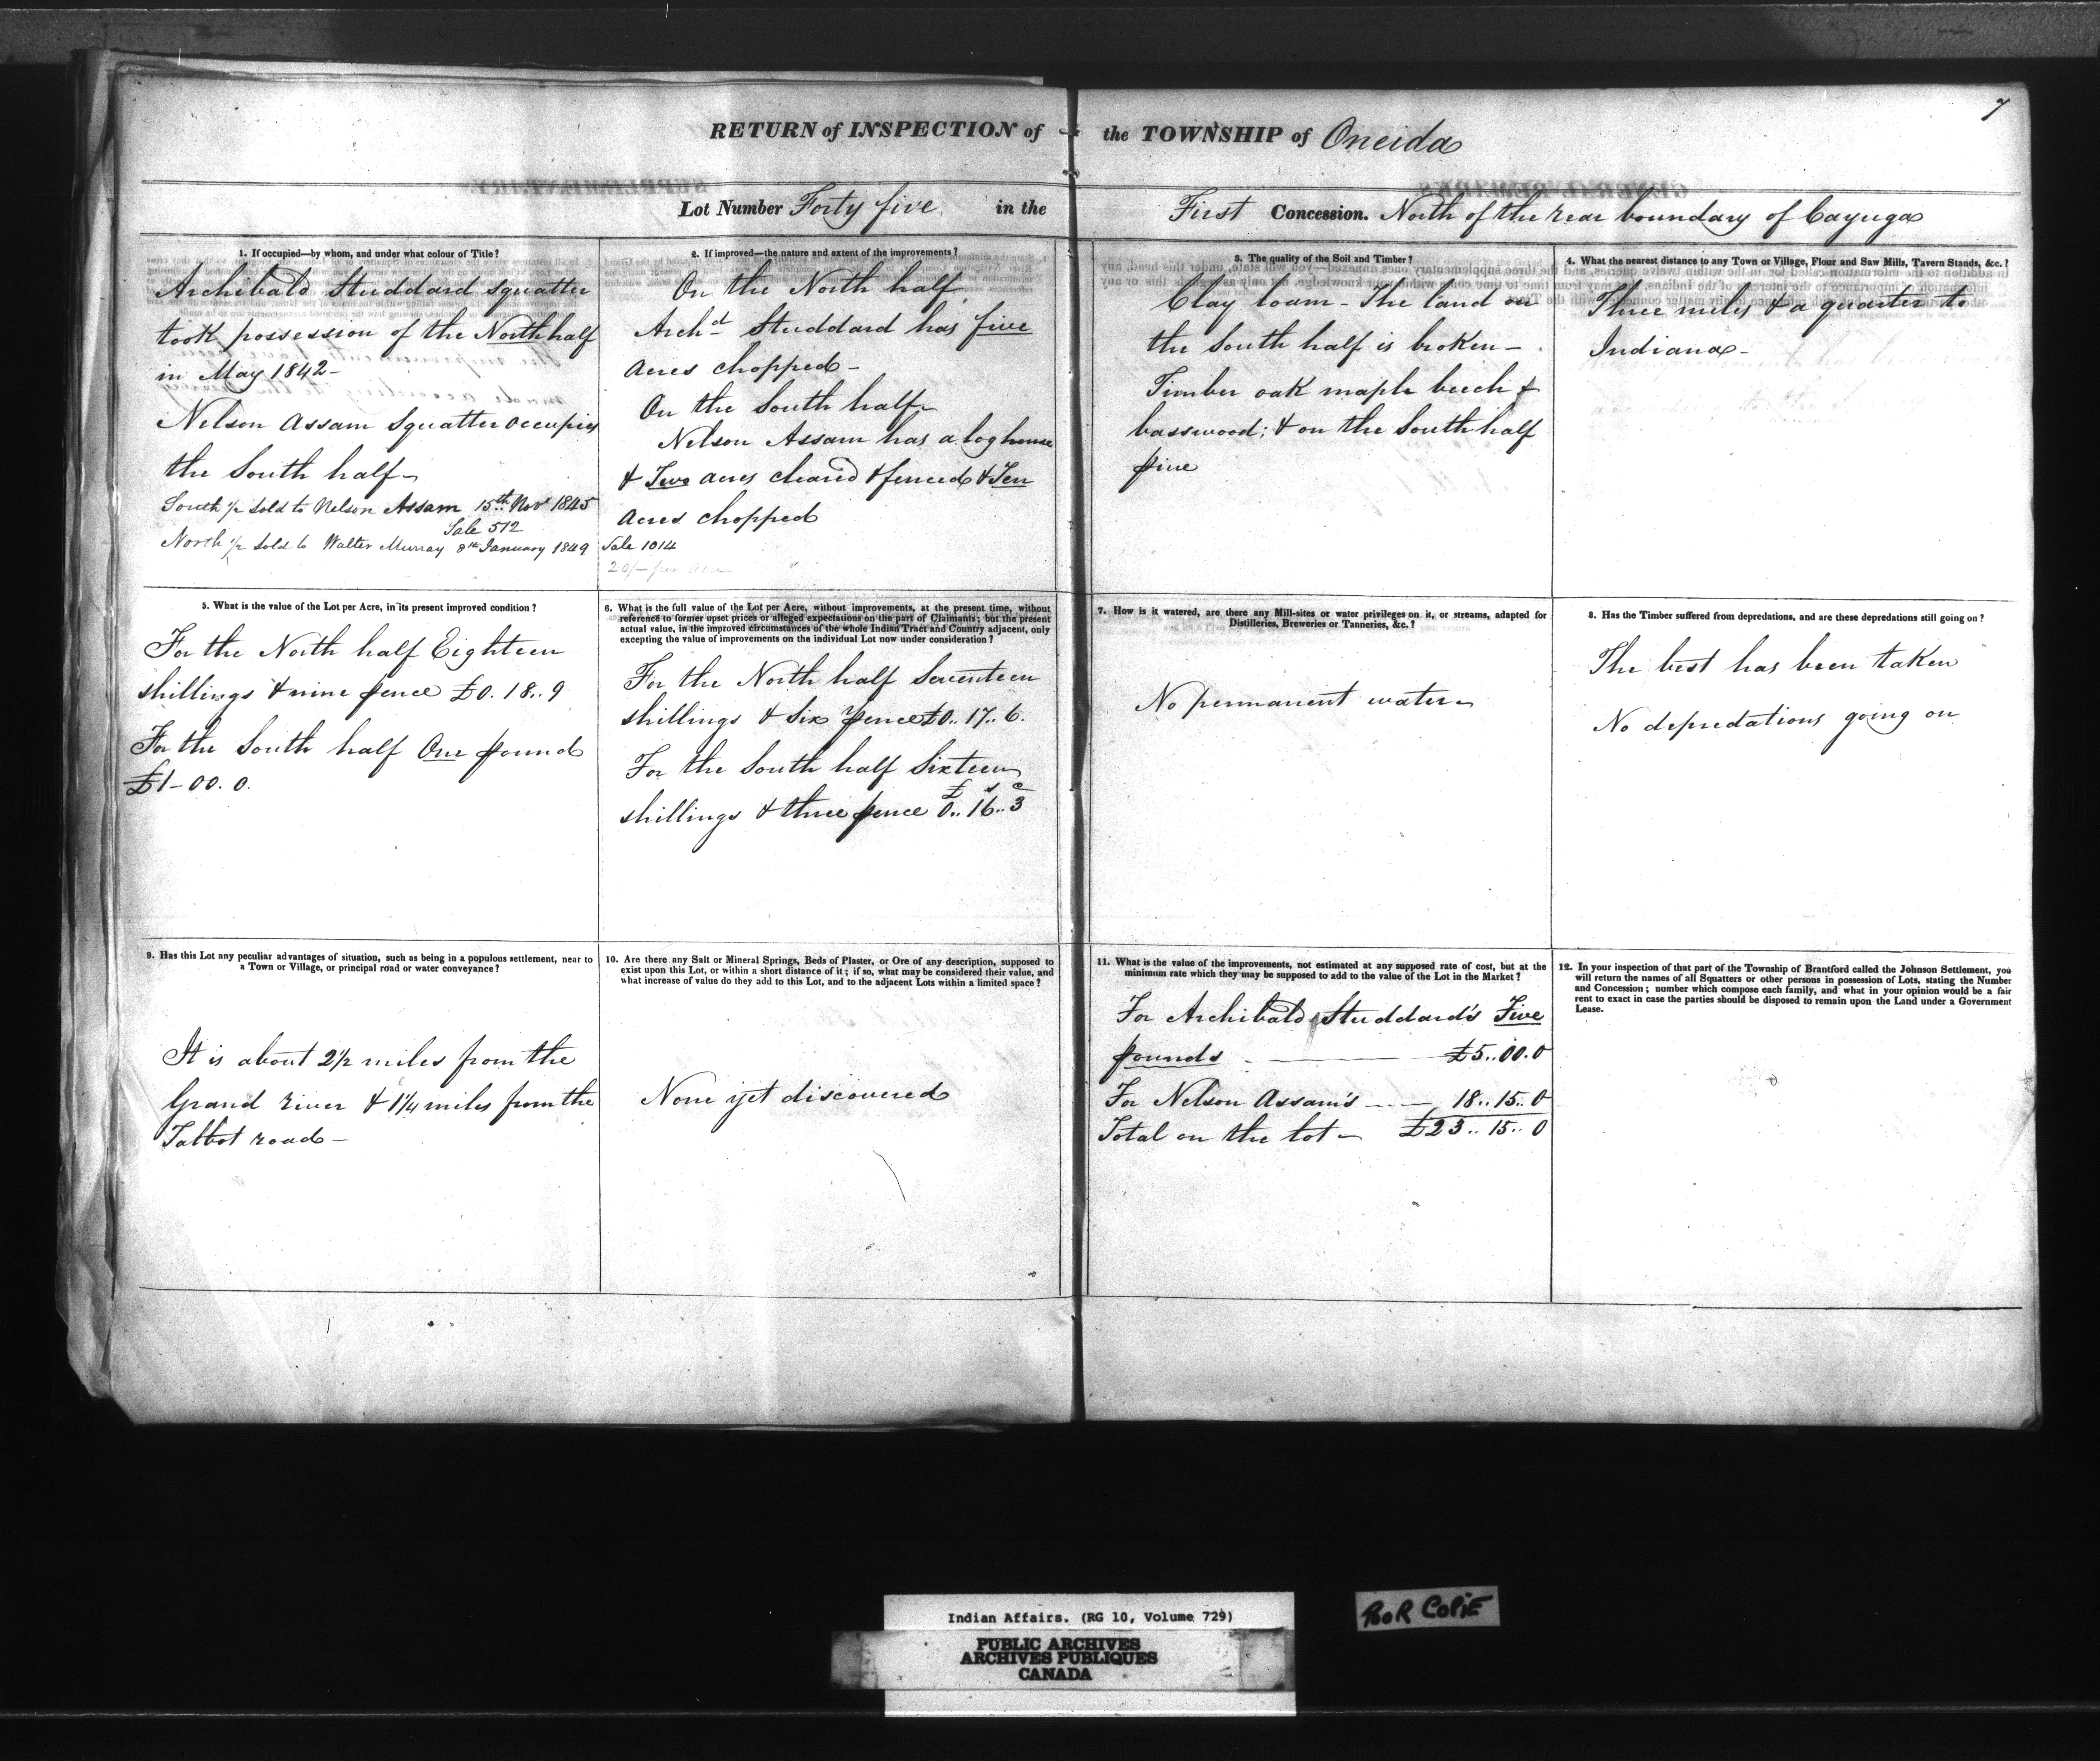 7
RETURN of INSPECTION of the TOWNSHIP of Oneida
Lot Number Forty five in the First Concession. North of the rear boundary of Cayuga
1. If occupied—by whom, and under what colour of Title?
Archibald Studdard squatter
took possession of the North half
in May 1842–
Nelson Assam Squatter occupies
the South half–
South 1/2 sold to Nelson Assam 15th Nov 1845
Sale 512
North 1/2 sold to Walter Murray 8th January 1849 Sale 1014
20/– per acre
2. If improved—the nature and extent of the improvements?
On the North half
Archd Studdard has five
acres chopped–
On the South half–
Nelson Assam has a log house
& Two acres cleared & fenced & Ten
acres chopped
3. The quality of the Soil and Timber?
Clay loam – The land on
the South half is broken–
Timber oak maple beech &
basswood; & on the South half
pine
4. What the nearest distance to any Town or Village, Flour and Saw Mills, Tavern Stands, &c.?
Three miles & a quarter to
Indiana–
5. What is the value of the Lot per Acre, in its present improved condition?
For the North half Eighteen
shillings & nine pence £0. 18.. 9
For the South half One pound
£1–00. 0.
6. What is the full value of the Lot per Acre, without improvements, at the present time, without
reference to former upset prices or alleged expectations on the part of Claimants; but the present
actual value, in the improved circumstances of the whole Indian Tract and Country adjacent, only
excepting the value of improvements on the individual Lot now under consideration?
For the North half Seventeen
shillings & Six pence £0.. 17.. 6.
For the South half Sixteen
shillings & three pence £0.. 16.. 3
7. How is it watered, are there any Mill-sites or water privileges on it, or streams, adapted for
Distilleries, Breweries or Tanneries, &c.?
No permanent water–
8. Has the Timber suffered from depredations, and are these depredations still going on?
The best has been taken
No depredations going on
9. Has this Lot any peculiar advantages of situation, such as being in a populous settlement, near to
a Town or Village, or principal road or water conveyance?
It is about 2 1/2 miles from the
Grand river & 1 1/4 miles from the
Talbot road–
10. Are there any Salt or Mineral Springs, Beds of Plaster, or Ore of any description, supposed to
exist upon this Lot, or within a short distance of it; if so, what may be considered their value, and
what increase of value do they add to this Lot, and to the adjacent Lots within a limited space?
None yet discovered
11. What is the value of the improvements, not estimated at any supposed rate of cost, but at the
minimum rate which they may be supposed to add to the value of the Lot in the Market?
For Archibald Studdard's Five
pounds – £5.. 00. 0
For Nelson Assam's – 18.. 15.. 0
Total on the lot – £23.. 15.. 0
12. In your inspection of that part of the Township of Brantford called the Johnson Settlement, you
will return the names of all Squatters or other persons in possession of Lots, stating the Number
and Concession; number which compose each family, and what in your opinion would be a fair
rent to exact in case the parties should be disposed to remain upon the Land under a Government
Lease.
Indian Affairs. (RG 10, Volume 729)
PUBLIC ARCHIVES
ARCHIVES PUBLIQUES
CANADA
POOR COPIE